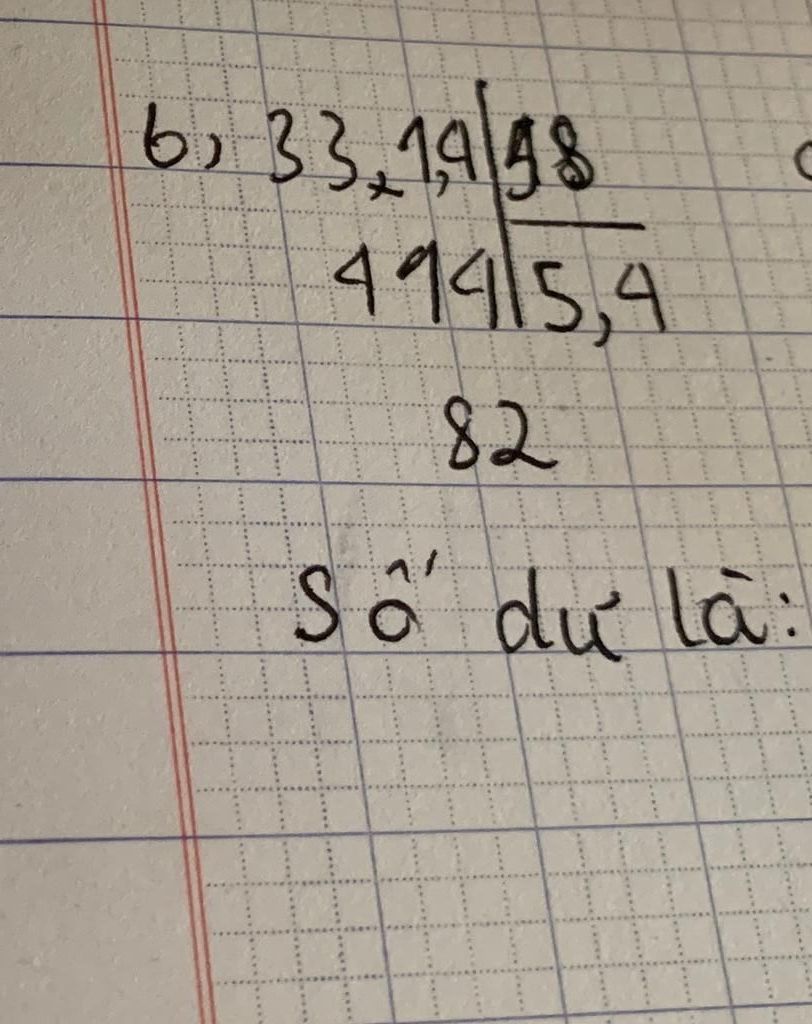 b, 331,4 58
414 5,4
82
Số dư là: